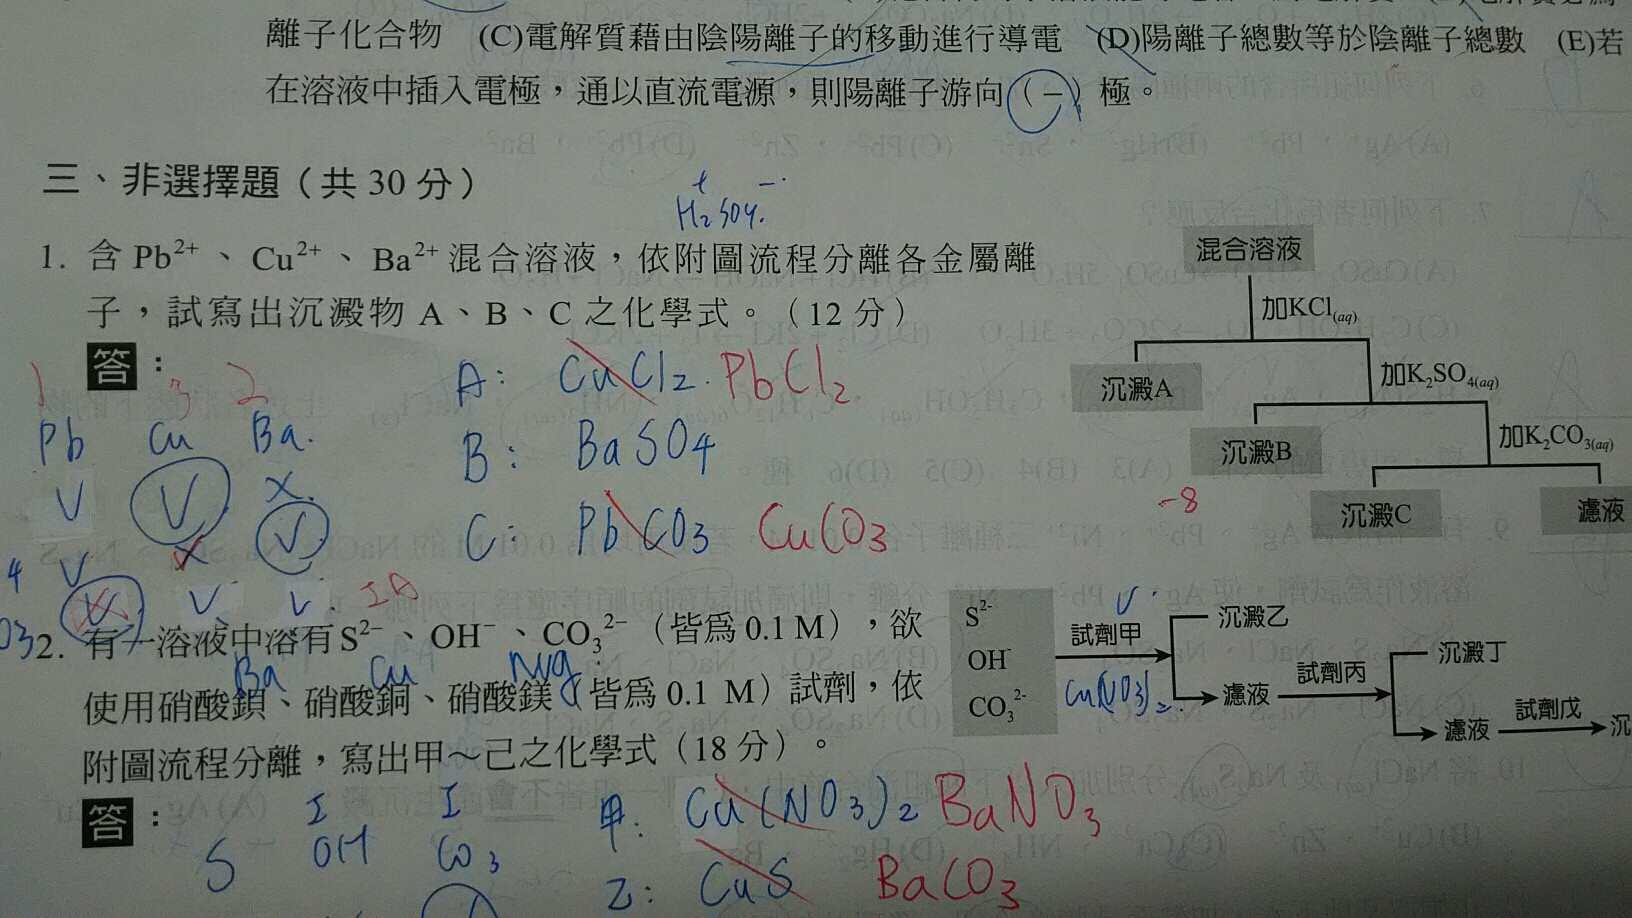 離子化合物 (C)電解質藉由陰陽離子的移動進行導電 (D)陽離子總數等於陰離子總數 (E)若
在溶液中插入電極，通以直流電源，則陽離子游向（－）極。
三、非選擇題（共 30 分）
+ -
H₂SO₄.
1. 含 Pb²⁺、Cu²⁺、Ba²⁺ 混合溶液，依附圖流程分離各金屬離
子，試寫出沉澱物 A、B、C 之化學式。（12 分）
混合溶液
加KCl(aq)
沉澱A
加K₂SO₄(aq)
沉澱B
加K₂CO₃(aq)
沉澱C
濾液
答：
1 3 2
Pb Cu Ba.
V V X.
V X V
4
V V V. IA
O3
A: CuCl₂. PbCl₂
B: BaSO₄
C: PbCO₃ CuCO₃
-8
2. 有一溶液中溶有 S²⁻、OH⁻、CO₃²⁻（皆為 0.1 M），欲
Ba Cu Mg
使用硝酸鋇、硝酸銅、硝酸鎂（皆為 0.1 M）試劑，依
附圖流程分離，寫出甲～己之化學式（18 分）。
S²⁻
OH⁻
CO₃²⁻
V
試劑甲
Cu(NO₃)₂.
沉澱乙
濾液
試劑丙
沉澱丁
濾液
試劑戊
沉
答：
I I
S OH CO₃
甲: Cu(NO₃)₂ BaNO₃
乙: CuS BaCO₃